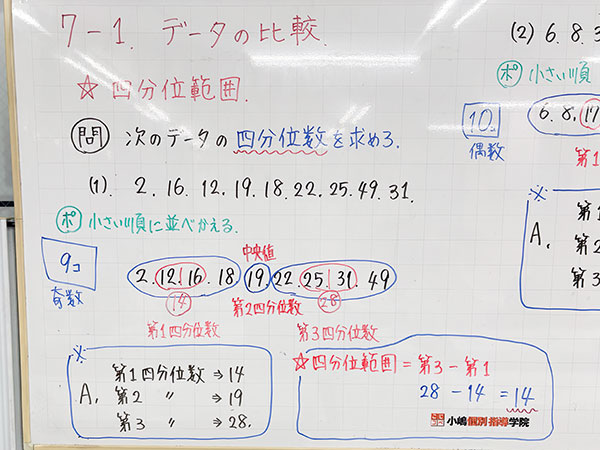 7-1. データの比較.
☆ 四分位範囲.
問 次のデータの四分位数を求めろ.
(1). 2. 16. 12. 19. 18. 22. 25. 49. 31.
ポ 小さい順に並べかえる.
9コ
奇数
中央値
2. 12. 16. 18. 19. 22. 25. 31. 49
14
第2四分位数
28
第1四分位数
第3四分位数
※
A. 第1四分位数 ⇒ 14
第2 〃 ⇒ 19
第3 〃 ⇒ 28.
☆四分位範囲 = 第3 - 第1
28 - 14 = 14
小嶋個別指導学院
(2) 6. 8. 3
ポ 小さい順
10コ
偶数
6. 8. 17
第1
※
A. 第1
第2
第3